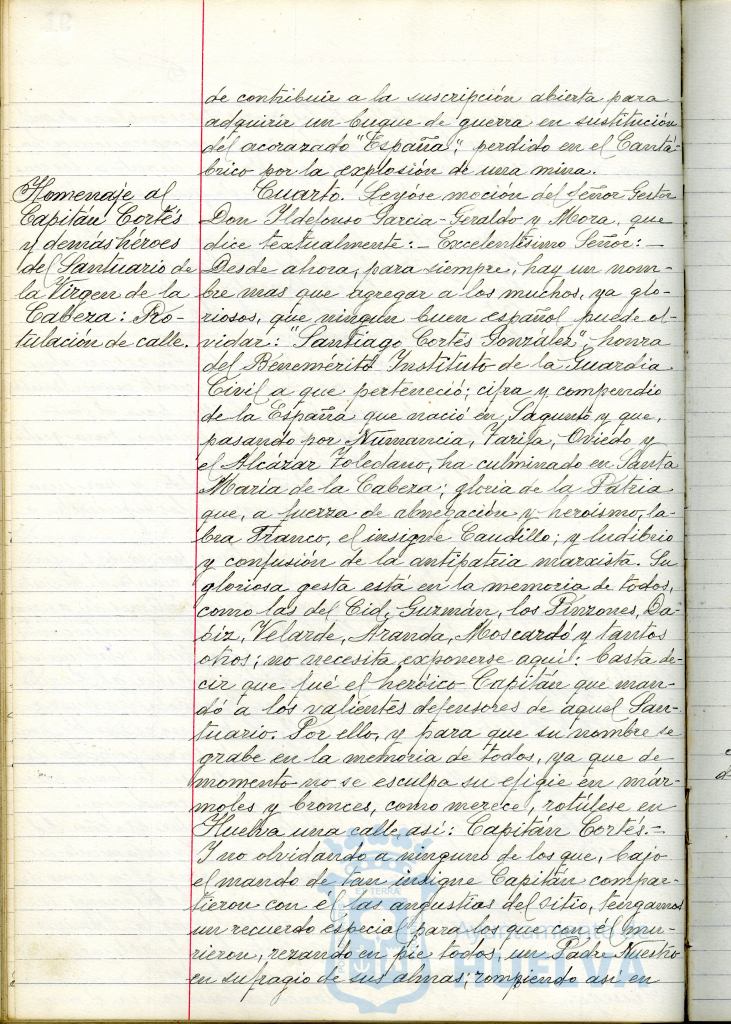 de contribuir a la suscripción abierta para
adquirir un buque de guerra en sustitución
del acorazado "España", perdido en el Cantá-
brico por la explosión de una mina.
Homenaje al
Capitán Cortés
y demás héroes
del Santuario de
la Virgen de la
Cabeza: Ro-
tulación de calle.
Cuarto. Leyóse moción del Señor Gestor
Don Ildefonso Garcia-Geraldo y Mora, que
dice textualmente: - Excelentísimo Señor: -
Desde ahora, para siempre, hay un nom-
bre mas que agregar a los muchos, ya glo-
riosos, que ningún buen español puede ol-
vidar: "Santiago Cortés González", honra
del Benemérito Instituto de la Guardia
Civil a que perteneció; cifra y compendio
de la España que nació en Sagunto y que,
pasando por Numancia, Tarifa, Oviedo y
el Alcázar Toledano, ha culminado en Santa
María de la Cabeza; gloria de la Patria
que, a fuerza de abnegación y heroismo, la-
bra Franco, el insigne Caudillo; y ludibrio
y confusión de la antipatria marxista. Su
gloriosa gesta está en la memoria de todos,
como las del Cid, Guzmán, los Pinzones, Da-
oiz, Velarde, Aranda, Moscardó y tantos
otros; no necesita exponerse aquí: basta de-
cir que fué el heróico Capitán que man-
dó a los valientes defensores de aquel San-
tuario. Por ello, y para que su nombre se
grabe en la memoria de todos, ya que de
momento no se esculpa su efigie en már-
moles y bronces, como merece, rotúlese en
Huelva una calle, así: Capitán Cortés.-
Y no olvidando a ninguno de los que, bajo
el mando de tan insigne Capitán compar-
tieron con él las angustias del sitio, tengamos
un recuerdo especial para los que con él mu-
rieron, rezando en pie todos, un Padre Nuestro
en sufragio de sus almas; rompiendo así en
Ayuntamiento de
HUELVA